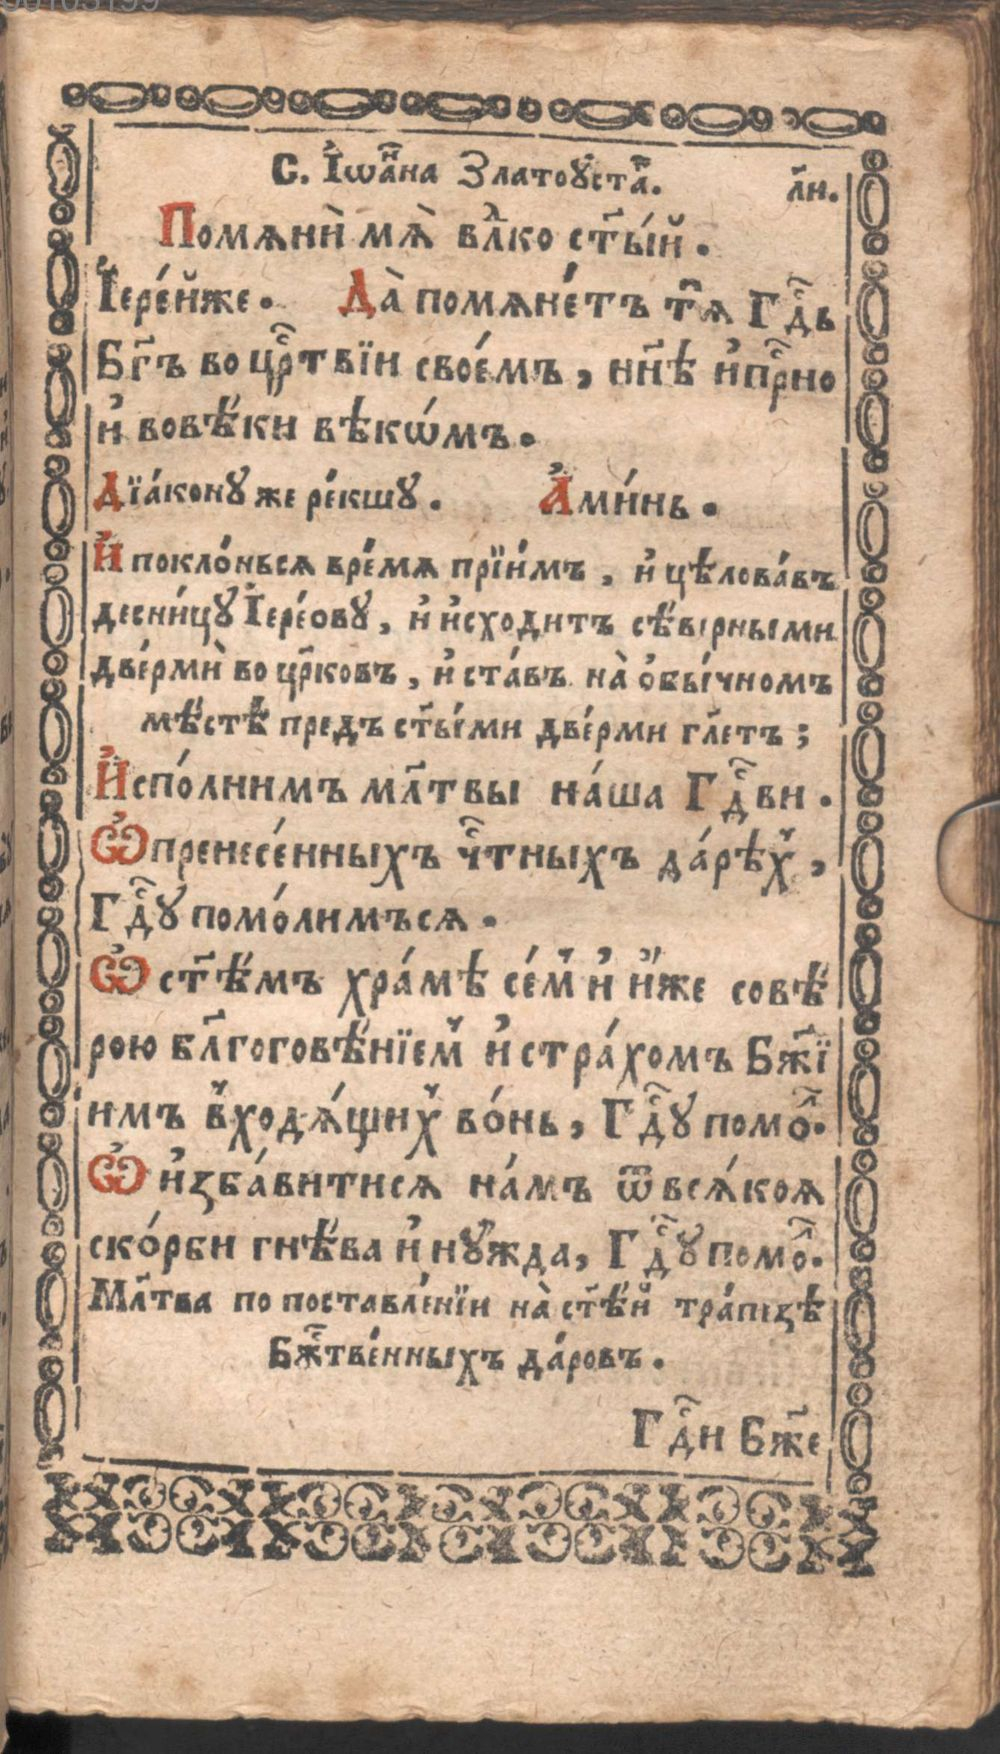 00103199
С. І҆ѡа҃на Златоꙋ́ста̀. л҃и.
Помѧнѝ мѧ̀ вл҃ко ст҃ы́й.
І҆ере́йже. Да̀ помѧне́тъ тѧ̀ Гд҇ь
Бг҃ъ во црⷭ҇твїи свое́мъ, нн҃ѣ и҆прⷭ҇но
и҆ вовѣ́ки вѣкѡ́мъ.
Дїа́конꙋ же ре́кшꙋ. А҆ми́нь.
И҆ покло́нься вре́мѧ прїи́мъ, и҆ цѣлова́въ
десни́цꙋ І҆ере́овꙋ, и҆ и҆сходитъ сѣ́верными
две́рмѝ во цр҃ковъ, и҆ ста́въ на̀ ѻ҆бы́чномъ
мѣ́стѣ предъ ст҃ы́ми две́рми гл҃етъ;
И҆спо́лнимъ мл҃твы на́ша Гдⷭ҇ви.
Ѽпренесе́нныхъ чⷭ҇тныхъ да́рѣхⸯ,
Гдⷭ҇ꙋ помо́лимъсѧ.
Ѽ ст҃ѣ́мъ хра́мѣ се́мⸯ и҆ и҆́же совѣ́
рою бл҃гоговѣ́нїемⸯ и҆страхомъ Бж҃їй
имъ вⸯходѧ́щихⸯ во́нь, Гдⷭ҇ꙋ помо́ⷧ.
Ѽ и҆зба́витисѧ на́мъ ѿвсѧ́коѧ
ско́рби гнѣ́ва и҆ нꙋ́жда, Гдⷭ҇ꙋ помо́ⷧ.
Мл҃тва по поставле́нїи на̀ ст҃ѣ́й тра́пезѣ
Бжⷭ҇тве́нныхъ да́ровъ.
Гдⷭ҇и Бж҃е